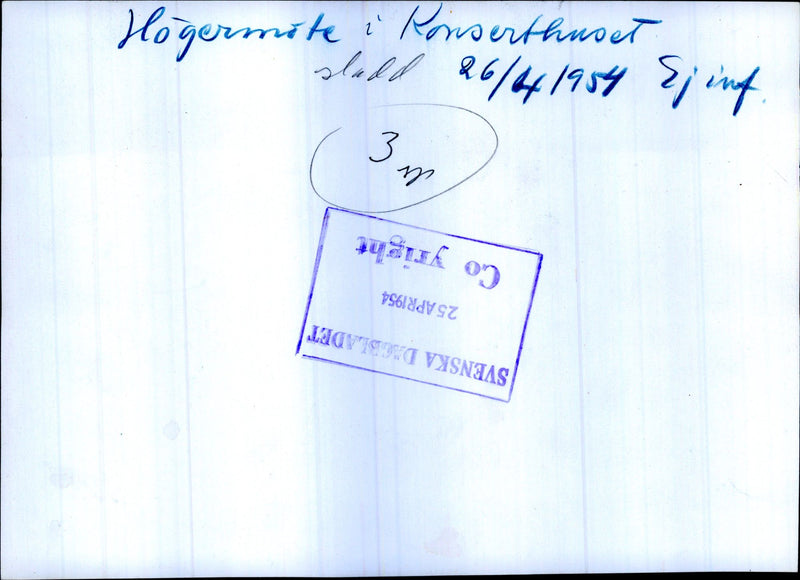 Högermöte i Konserthuset
sladd 26/4 1954 Ej inf.
3 sp
SVENSKA DAGBLADET
25 APR 1954
Co yright